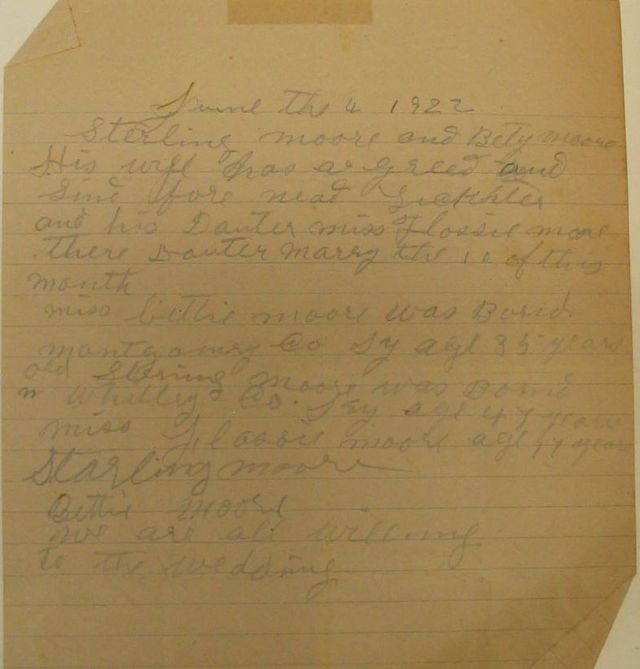 June the 4 1922
Sterling moore and Bety moore
His wife has argreed and
Sind fore
and his Dauter miss Flossie more
there Dauter Marry the 10 of this
month
miss bittie moore was Bornd
montgomry Co Ky age 35 years
old Sterling moore was Bornd
n Whitley Co. Ky age 47 years
miss Flossie moore age 17 years
Starling moore
Bittie moore
we are all willing
to the wedding